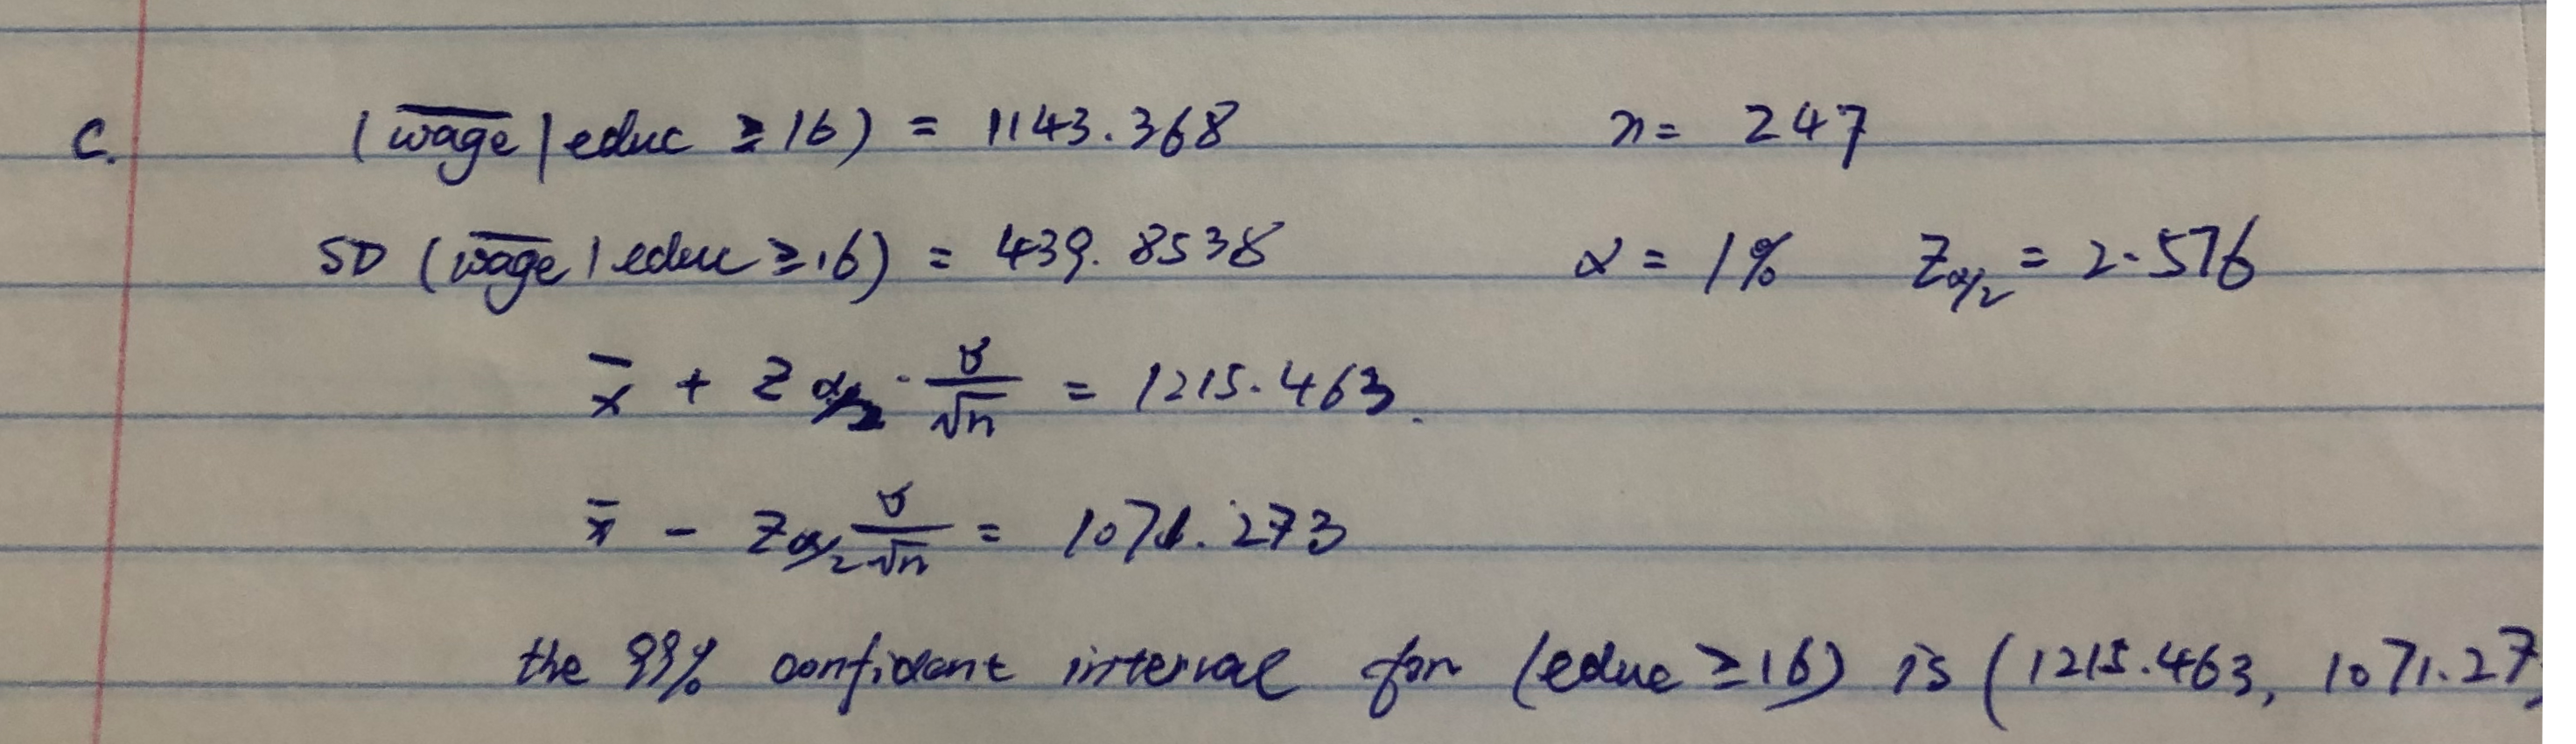 C. (wage̅ | educ ≥ 16) = 1143.368 n = 247
SD (wage̅ | educ ≥ 16) = 439.8538 α = 1% Zα/2 = 2.576
x̅ + Zα/2 · σ/√n = 1215.463.
x̅ - Zα/2 σ/√n = 1071.273
the 99% confident interval for (educ ≥ 16) is (1215.463, 1071.27